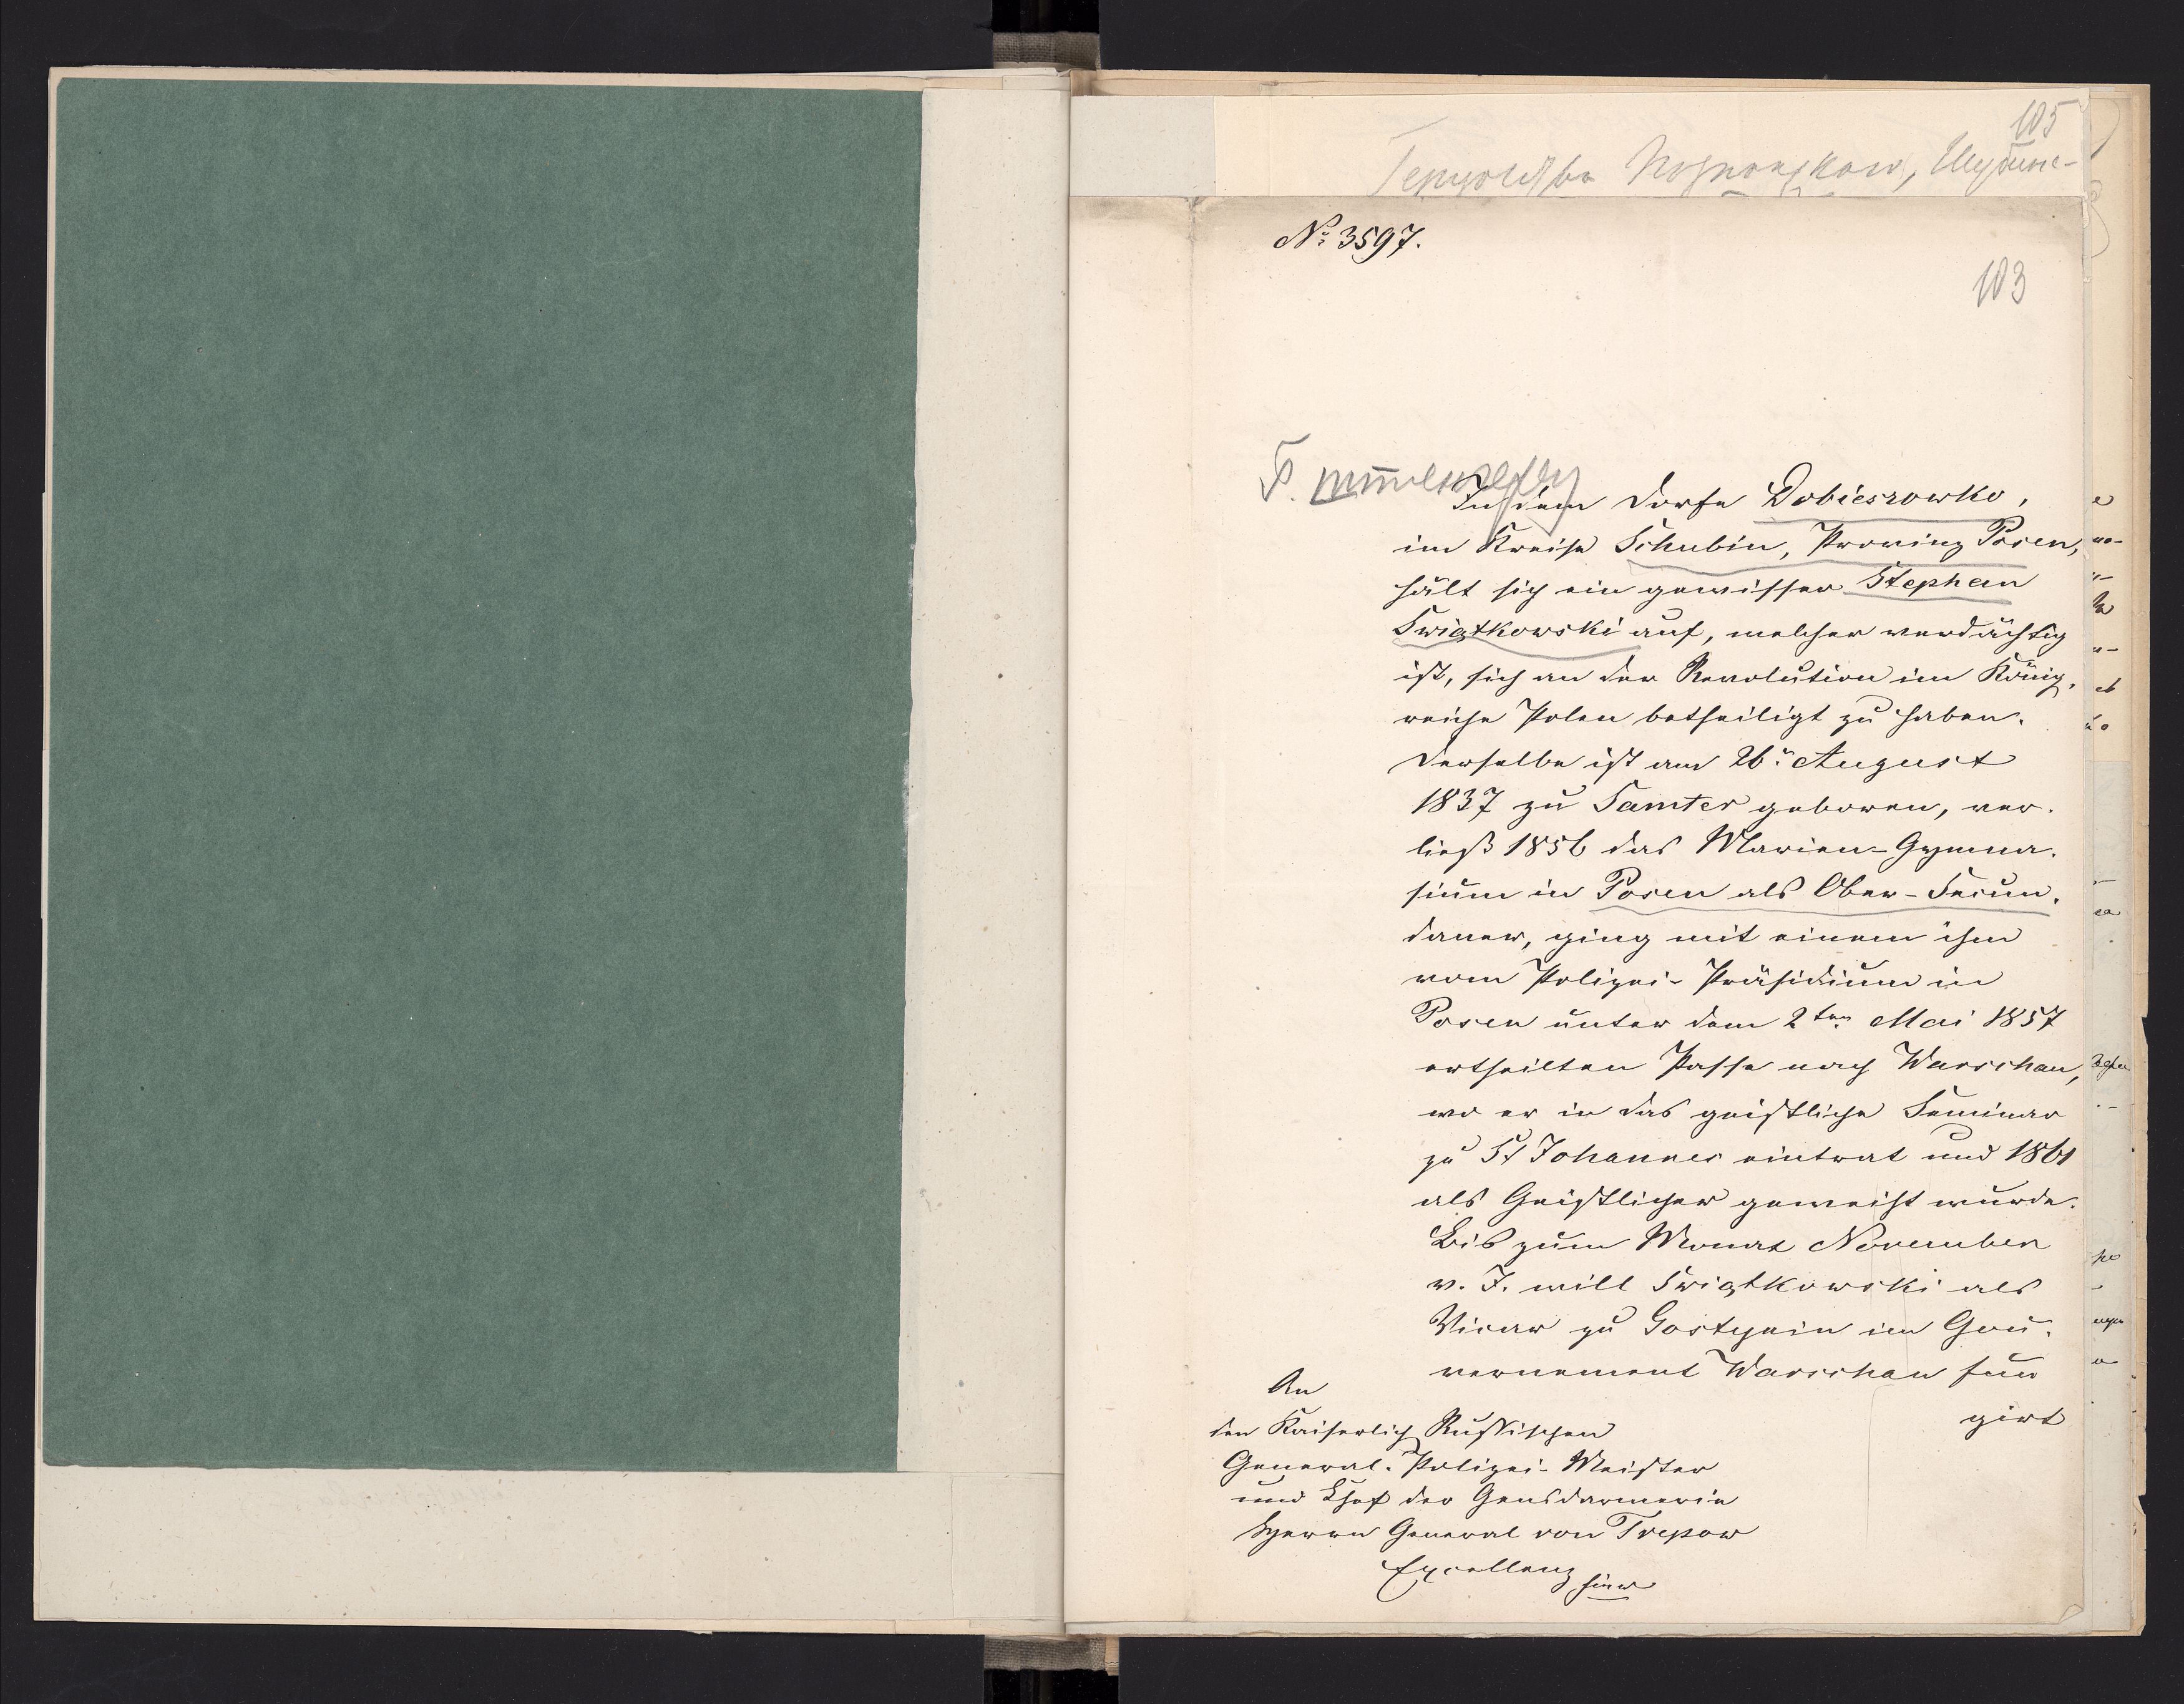 105
№ 3597.
103
In dem Dorfe Dobieszowko,
im Kreise Schubin, Provinz Posen,
hält sich ein gewisser Stephan
Swiątkowski auf, welcher verdächtig
ist, sich an der Revolution im König-
reiche Polen betheiligt zu haben.
Derselbe ist am 26n August
1837 zu Samter geboren, ver-
ließ 1856 das Marien-Gymna-
sium in Posen als Ober-Secun-
daner, ging mit einem ihm
vom Polizei-Präsidium in
Posen unter dem 2ten Mai 1857
ertheilten Passe nach Warschau,
wo er in das geistliche Seminar
zu St Johannes eintrat und 1861
als Geistlicher geweiht wurde.
Bis zum Monat November
v. J. will Swiątkowski als
Vicar zu Gostynin im Gou-
vernement Warschau fun
girt
An
den Kaiserlich Russischen
General-Polizei-Meister
und Chef der Gensdarmerie
Herrn General von Trepow
Excellenz
hier